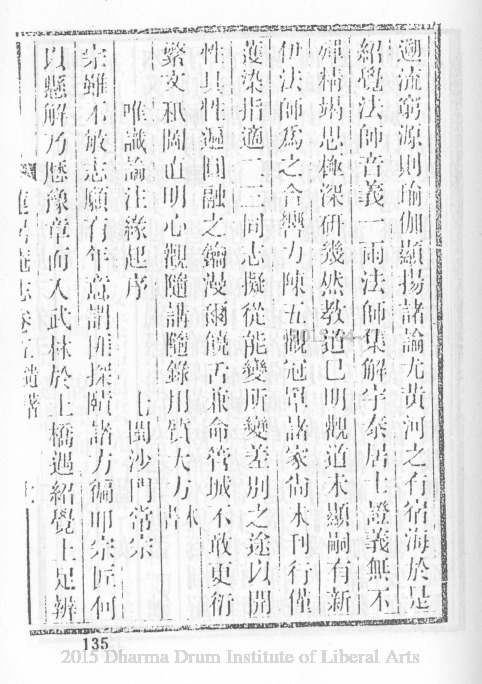 遡流窮源則瑜伽顯揚諸論尤黃河之有宿海於是
紹覺法師音義一雨法師集解宇泰居士證義無不
殫精竭思極深研幾然教道已明觀道未顯嗣有新
伊法師為之合響力陳五觀冠罩諸家尚未刊行僅
獲染指適二三同志擬從能變所變差別之途以開
性具性遍圓融之鑰漫爾饒舌兼命管城不敢更衍
繁文秖圖直明心觀隨講隨錄用質大方
唯識論注緣起序 七閩沙門常宗
宗雖不敏志願有年意謂匪探賾諸方徧叩宗匠何
以懸解乃歷豫章而入武林於土橋遇紹覺上足辨
蓮居庵志卷五 遺著
135
2015 Dharma Drum Institute of Liberal Arts